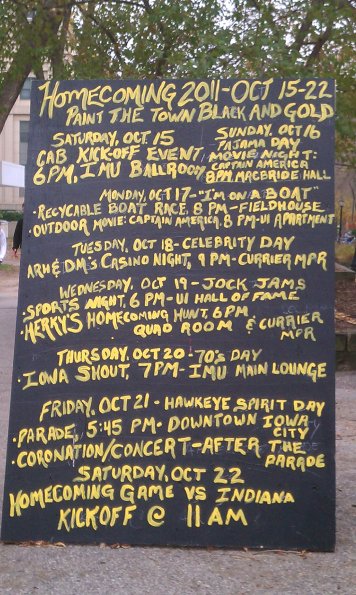 HOMECOMING 2011-OCT 15-22
PAINT THE TOWN BLACK AND GOLD
SATURDAY, OCT. 15
CAB KICK-OFF EVENT
6PM, IMU BALLROOM
SUNDAY, OCT 16
PAJAMA DAY
MOVIE NIGHT:
CAPTAIN AMERICA
8PM, MACBRIDE HALL
MONDAY, OCT 17-"I'M ON A BOAT"
·RECYCABLE BOAT RACE, 8 PM-FIELDHOUSE
·OUTDOOR MOVIE: CAPTAIN AMERICA, 8 PM-UI APARTMENT
TUESDAY, OCT 18-CELEBRITY DAY
ARH & DM'S CASINO NIGHT, 9 PM-CURRIER MPR
WEDNESDAY, OCT 19-JOCK JAMS
·SPORTS NIGHT, 6 PM-UI HALL OF FAME
·HERKY'S HOMECOMING HUNT, 6PM
QUAD ROOM & CURRIER
MPR
THURSDAY, OCT 20-70'S DAY
·IOWA SHOUT, 7PM-IMU MAIN LOUNGE
FRIDAY, OCT 21-HAWKEYE SPIRIT DAY
·PARADE, 5:45 PM-DOWNTOWN IOWA
CITY
·CORONATION/CONCERT-AFTER THE
PARADE
SATURDAY, OCT 22
HOMECOMING GAME VS INDIANA
KICKOFF @ 11AM